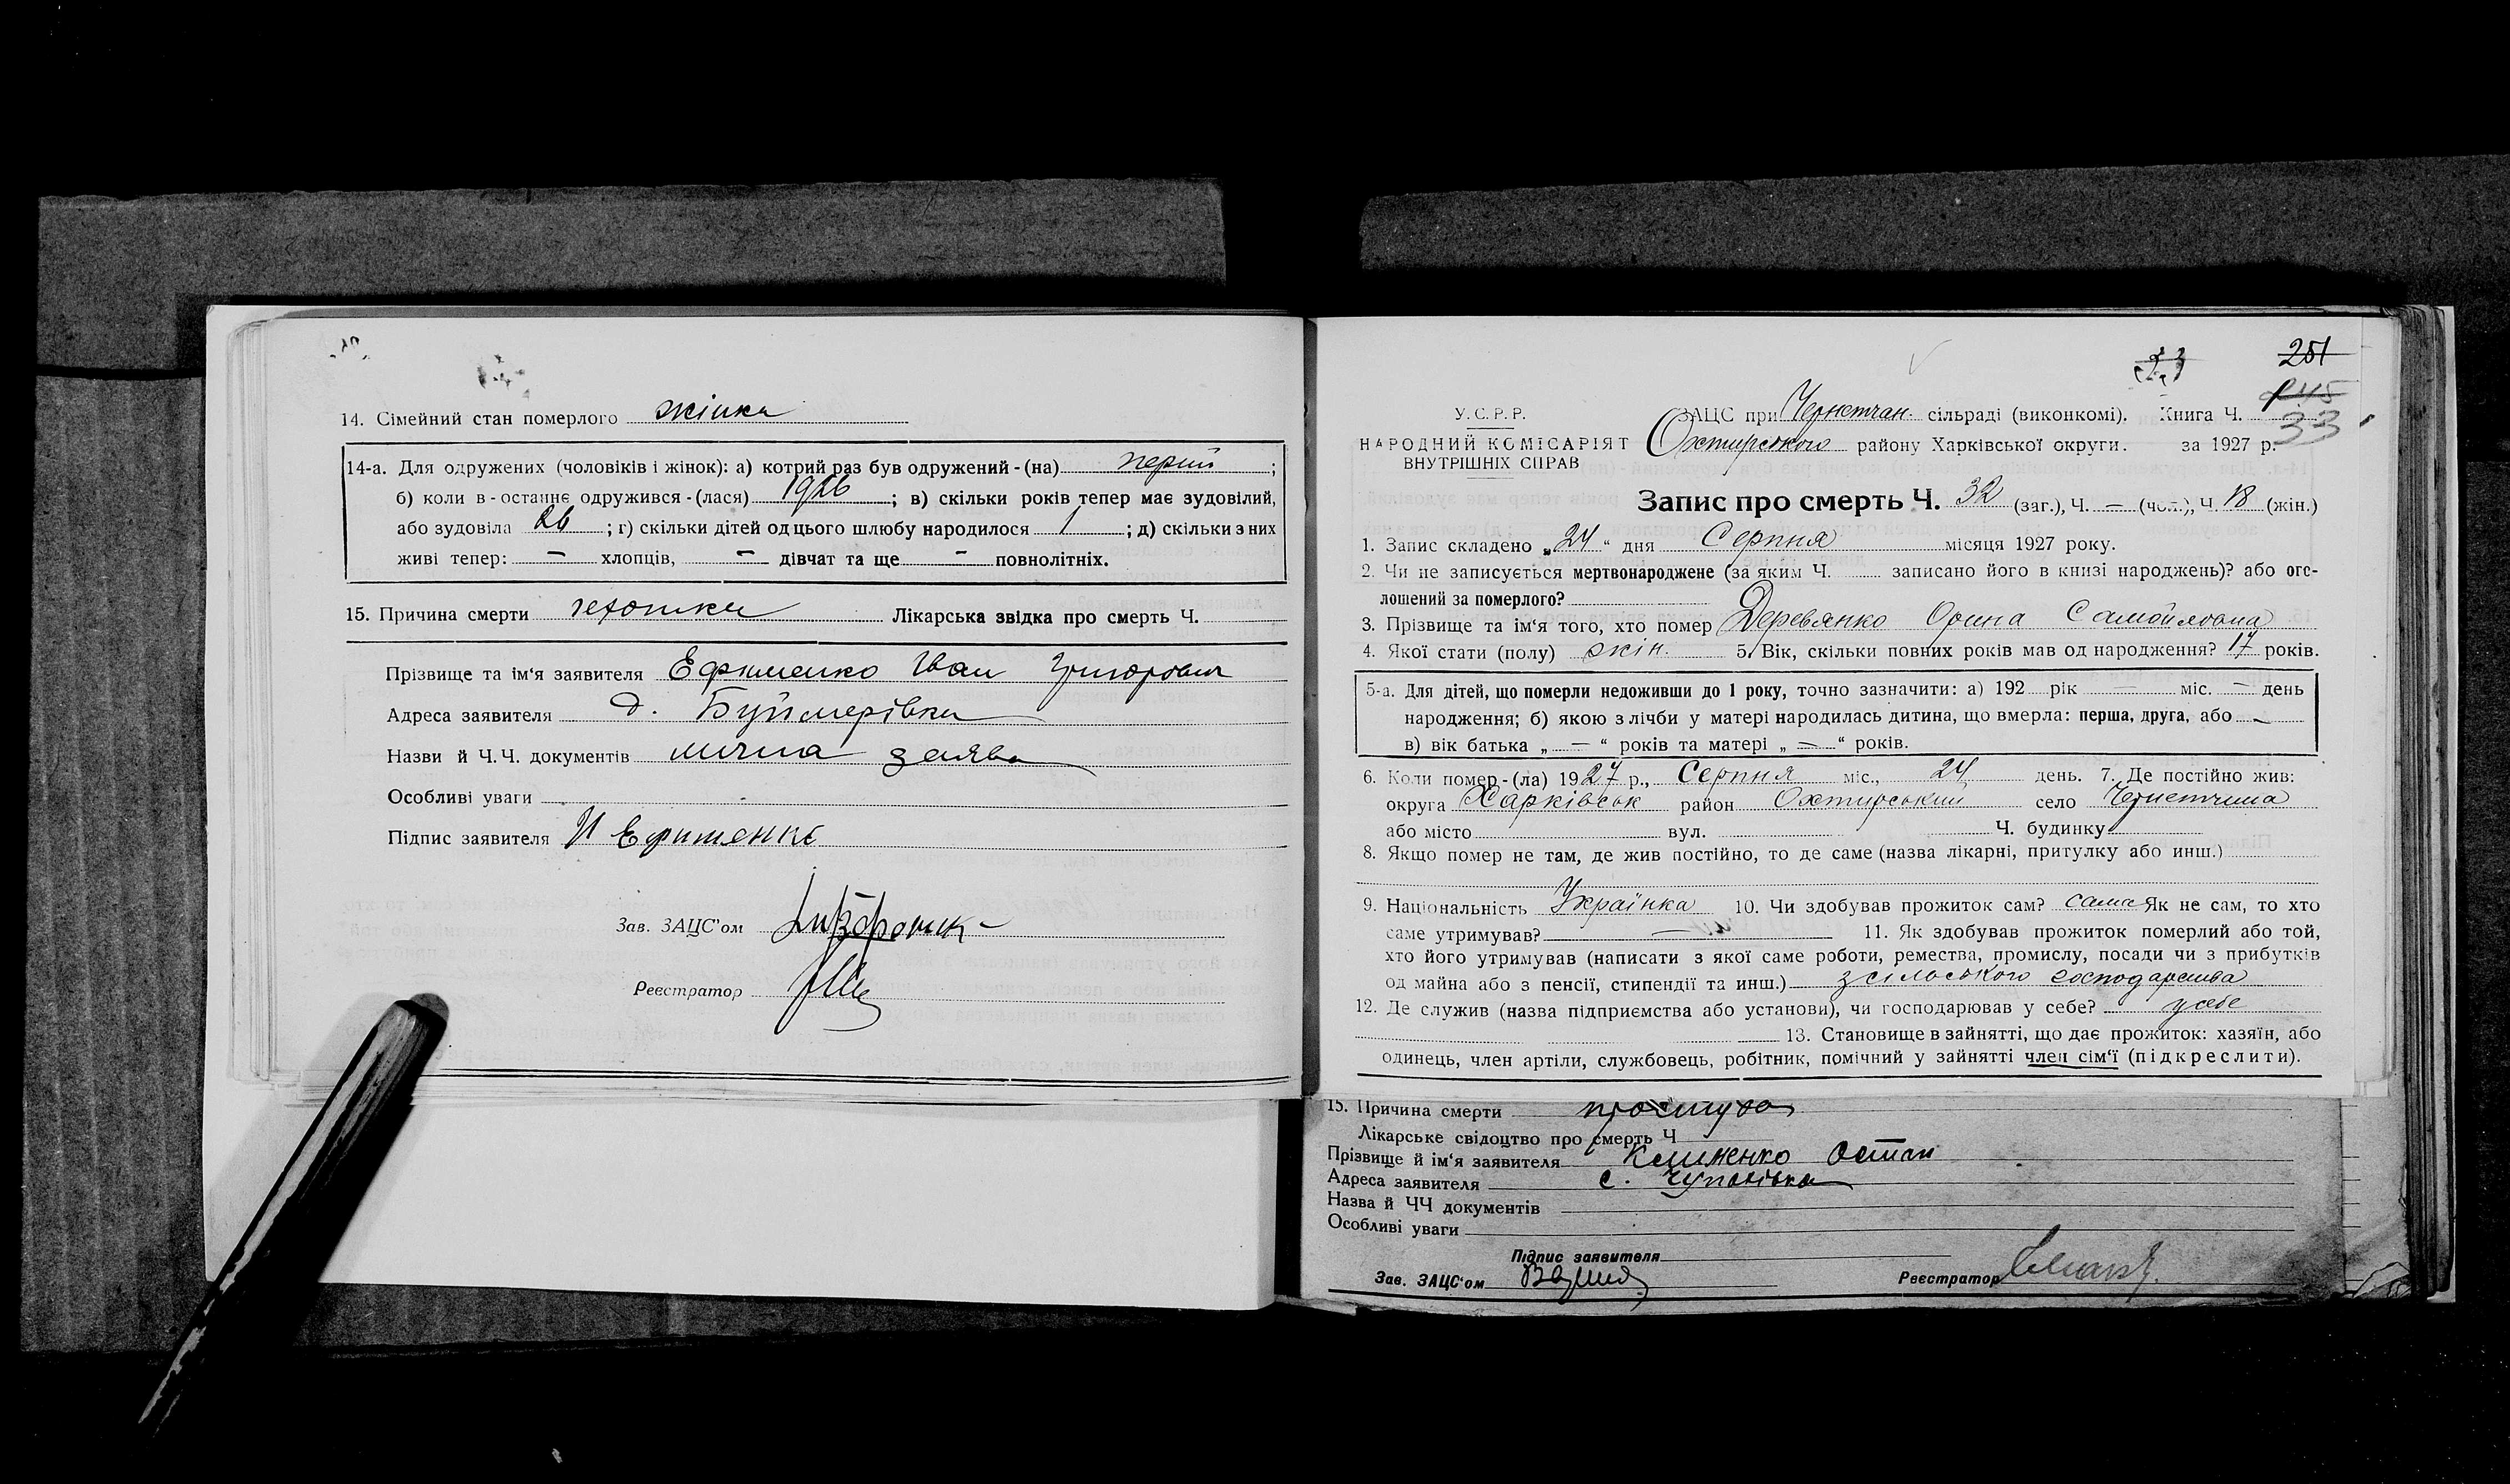 14. Сімейний стан померлого жінка
14-а. Для одружених (чоловіків і жінок): а) котрий раз був одружений-(на) перши ;
б) коли в-останнє одружився-(лася) 1926 ; в) скільки років тепер має зудовілий,
або зудовіла 26 ; г) скільки дітей од цього шлюбу народилося 1 ; д) скільки з них
живі тепер: — хлопців, — дівчат та ще — повнолітніх.
15. Причина смерти Лікарська звідка про смерть Ч.
Прізвище та ім'я заявителя Ефименко Іван Григорович
Адреса заявителя д. Буймерівка
Назви й Ч.Ч. документів лична заява
Особливі уваги
Підпис заявителя И Ефименко
Зав. ЗАЦС'ом
Реєстратор
251
33
У.С.Р.Р.
НАРОДНИЙ КОМІСАРІЯТ
ВНУТРІШНІХ СПРАВ
ЗАЦС при Чернетчан. сільраді (виконкомі). Книга Ч.
Охтирського району Харківської округи. за 1927 р.
Запис про смерть Ч. 32 (заг.), Ч. — (чол.), Ч. 18 (жін.)
1. Запис складено „24“ дня Серпня місяця 1927 року.
2. Чи не записується мертвонароджене (за яким Ч. записано його в книзі народжень)? або ого-
лошений за померлого?
3. Прізвище та ім'я того, хто помер Деревянко Орина Самойловна
4. Якої стати (полу) жін. 5. Вік, скільки повних років мав од народження? 17 років.
5-а. Для дітей, що померли недоживши до 1 року, точно зазначити: а) 192 рік — міс. — день
народження; б) якою з лічби у матері народилась дитина, що вмерла: перша, друга, або —
в) вік батька „—“ років та матері „—“ років.
6. Коли помер-(ла) 1927 р., Серпня міс., 24 день. 7. Де постійно жив:
округа Харківськ район Охтирський село Чернетчина
або місто вул. Ч. будинку
8. Якщо помер не там, де жив постійно, то де саме (назва лікарні, притулку або инш.)
9. Національність Українка 10. Чи здобував прожиток сам? сама Як не сам, то хто
саме утримував? — 11. Як здобував прожиток померлий або той,
хто його утримував (написати з якої саме роботи, ремества, промислу, посади чи з прибутків
од майна або з пенсії, стипендії та инш.) з сільського господарства
12. Де служив (назва підприємства або установи), чи господарював у себе? у себе
13. Становище в зайнятті, що дає прожиток: хазяїн, або
одинець, член артіли, службовець, робітник, помічний у зайнятті член сім'ї (підкреслити).
15. Причина смерти простуда
Лікарське свідоцтво про смерть Ч
Прізвище й ім'я заявителя Клименко Остап
Адреса заявителя с. Чупахівка
Назва й ЧЧ документів
Особливі уваги
Підпис заявителя
Зав. ЗАЦС'ом Реєстратор